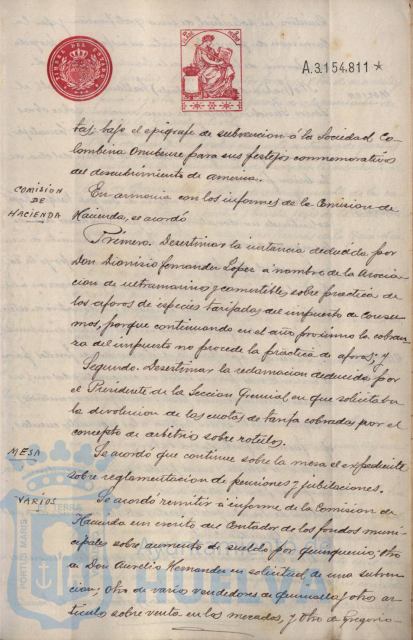 TIMBRE DEL ESTADO
A.3.154,811 *
tas, bajo el epigrafe de subvencion á la Sociedad Co-
lombina Onubense para sus festejos conmemorativos
del descubrimiento de america.
COMISION
DE
HACIENDA
En armonia con los informes de la Comision de
Hacienda, se acordó
Primero. Desestimar la instancia deducida por
Don Dionisio Fernandez Lopez a nombre de la Asocia-
cion de ultramarinos y comestibles sobre practica de
los aforos de especies tarifadas del impuesto de Consu-
mos, porque continuando en el año proximo la cobran-
za del impuesto no procede la práctica de aforos; y
Segundo. Desestimar la reclamacion deducida por
el Presidente de la Seccion Gremial en que solicitaba
la devolucion de las cuotas de tarifa cobradas por el
concepto de arbitrio sobre rotulos.
MESA
Se acordó que continue sobre la mesa el expediente
sobre reglamentacion de pensiones y jubilaciones.
VARIOS
Se acordó remitir á informe de la Comision de
Hacienda un escrito del Contador de los fondos muni-
cipales sobre aumento de sueldo por quinquenio, otro
de Don Aurelio Hernandez en solicitud de una subven-
cion, otro de varios vendedores de quincalla y otros ar-
ticulos sobre venta en los mercados, y otro de Gregorio
PORTUS MARIS
TERRÆ
HUELVA